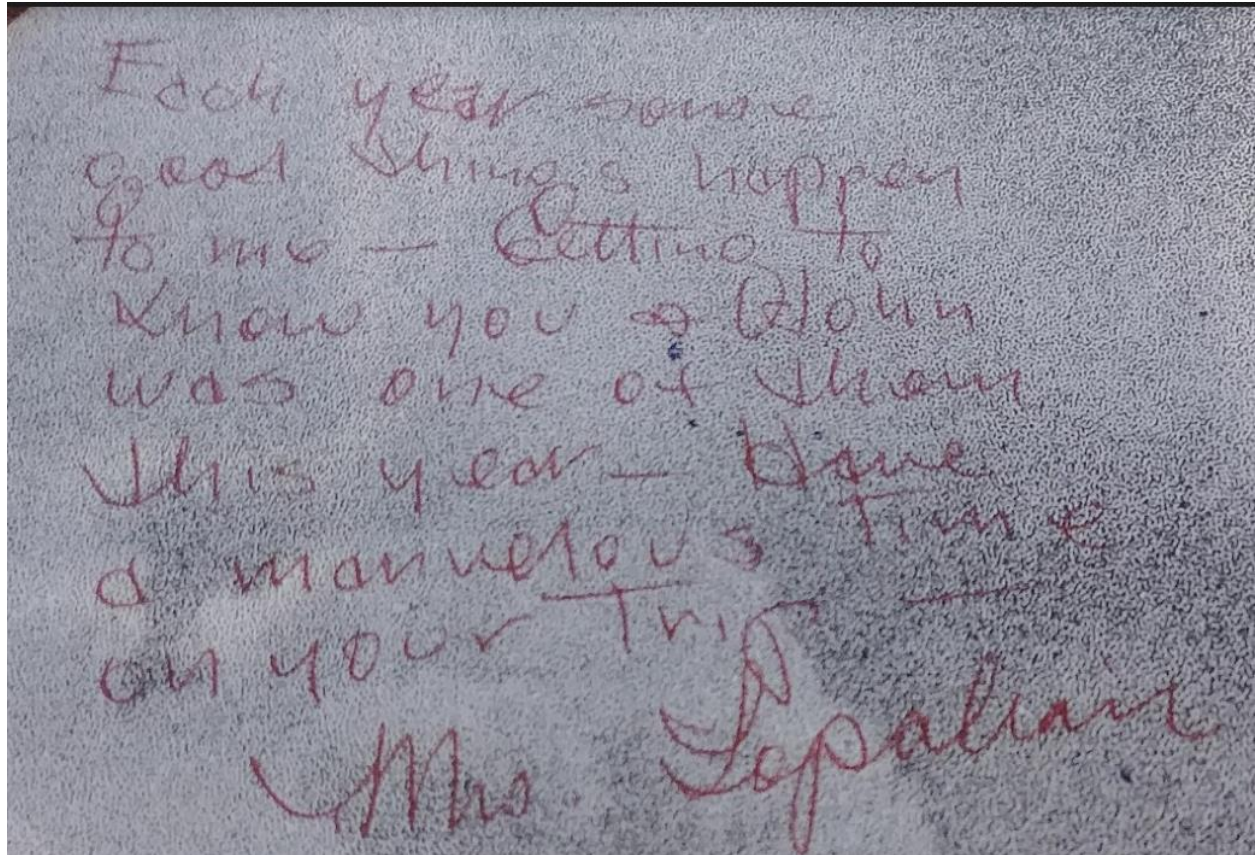 Each year some
good things happen
to me — Getting to
Know you & John
was one of them
this year — Have
a marvelous Time
on your Trip —
Mrs.